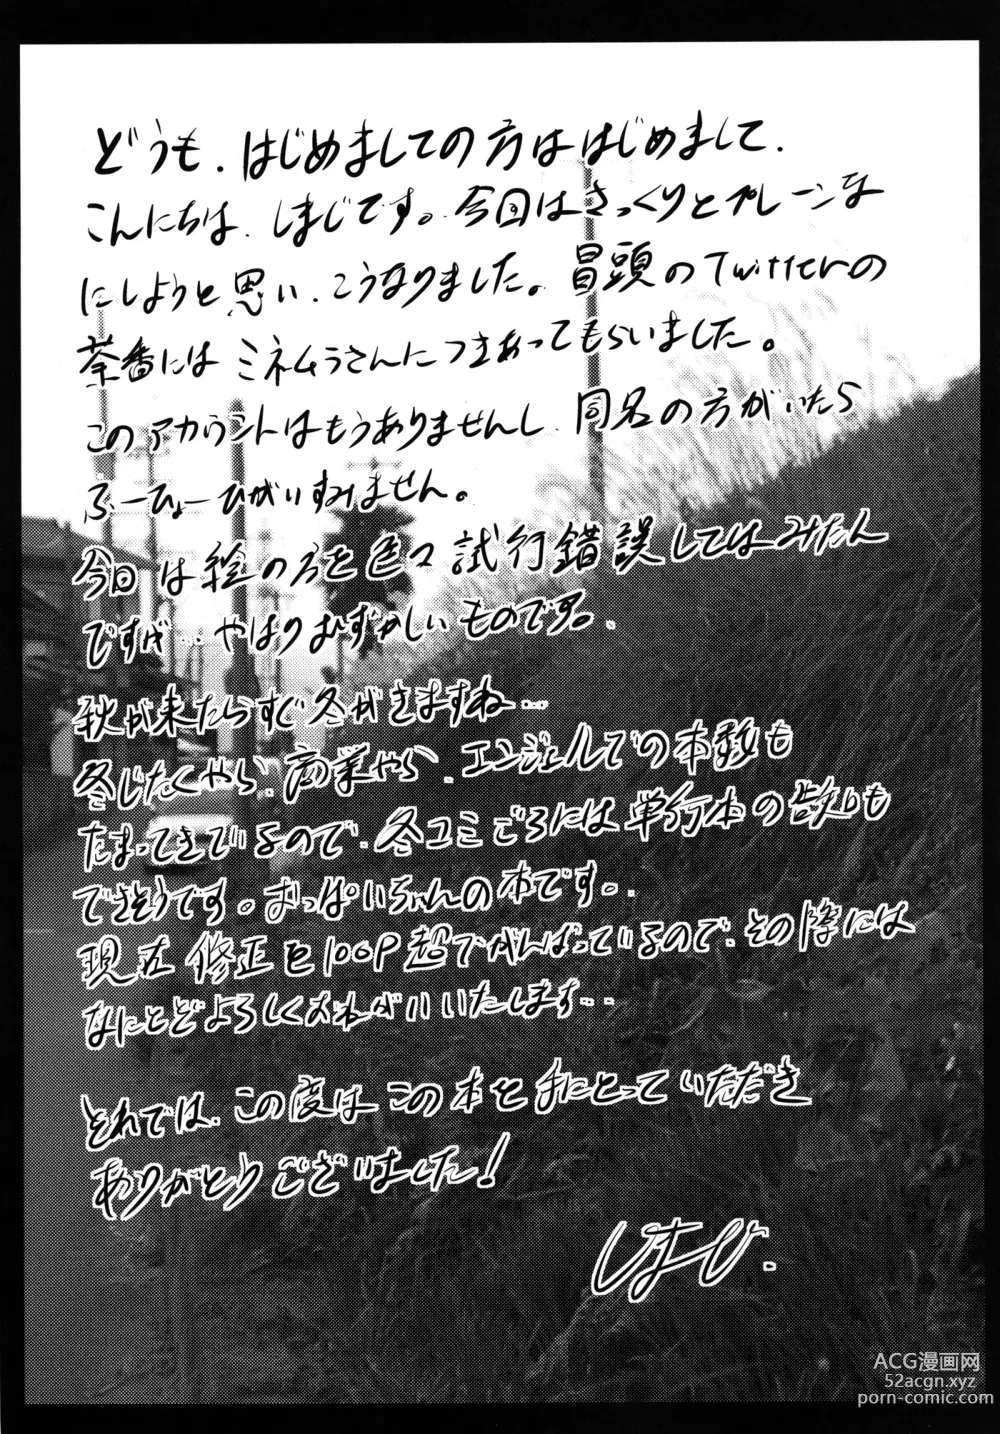 どうも、はじめましての方ははじめまして、
こんにちは、しまじです。今回はさっくりとプレーンな
にしようと思い、こうなりました。冒頭のTwitterの
茶番にはミネムラさんにつきあってもらいました。
このアカウントはもうありませんし、同名の方がいたら
ふーひょーひがいすみません。
今回は絵の方を色々試行錯誤してはみたん
ですが…やはりむずかしいものです。
秋が来たらすぐ冬がきますね…
冬じたくやら、商業やら、エンジェルでの本数も
たまってきているので、冬コミごろには単行本の告知も
できそうです。おっぱいちゃんの本です。
現在修正を100P超でがんばっているので、その際には
なにとぞよろしくおねがいいたします…
それでは、この度はこの本を手にとっていただき
ありがとうございました!
ACG漫画网
52acgn.xyz
porn-comic.com